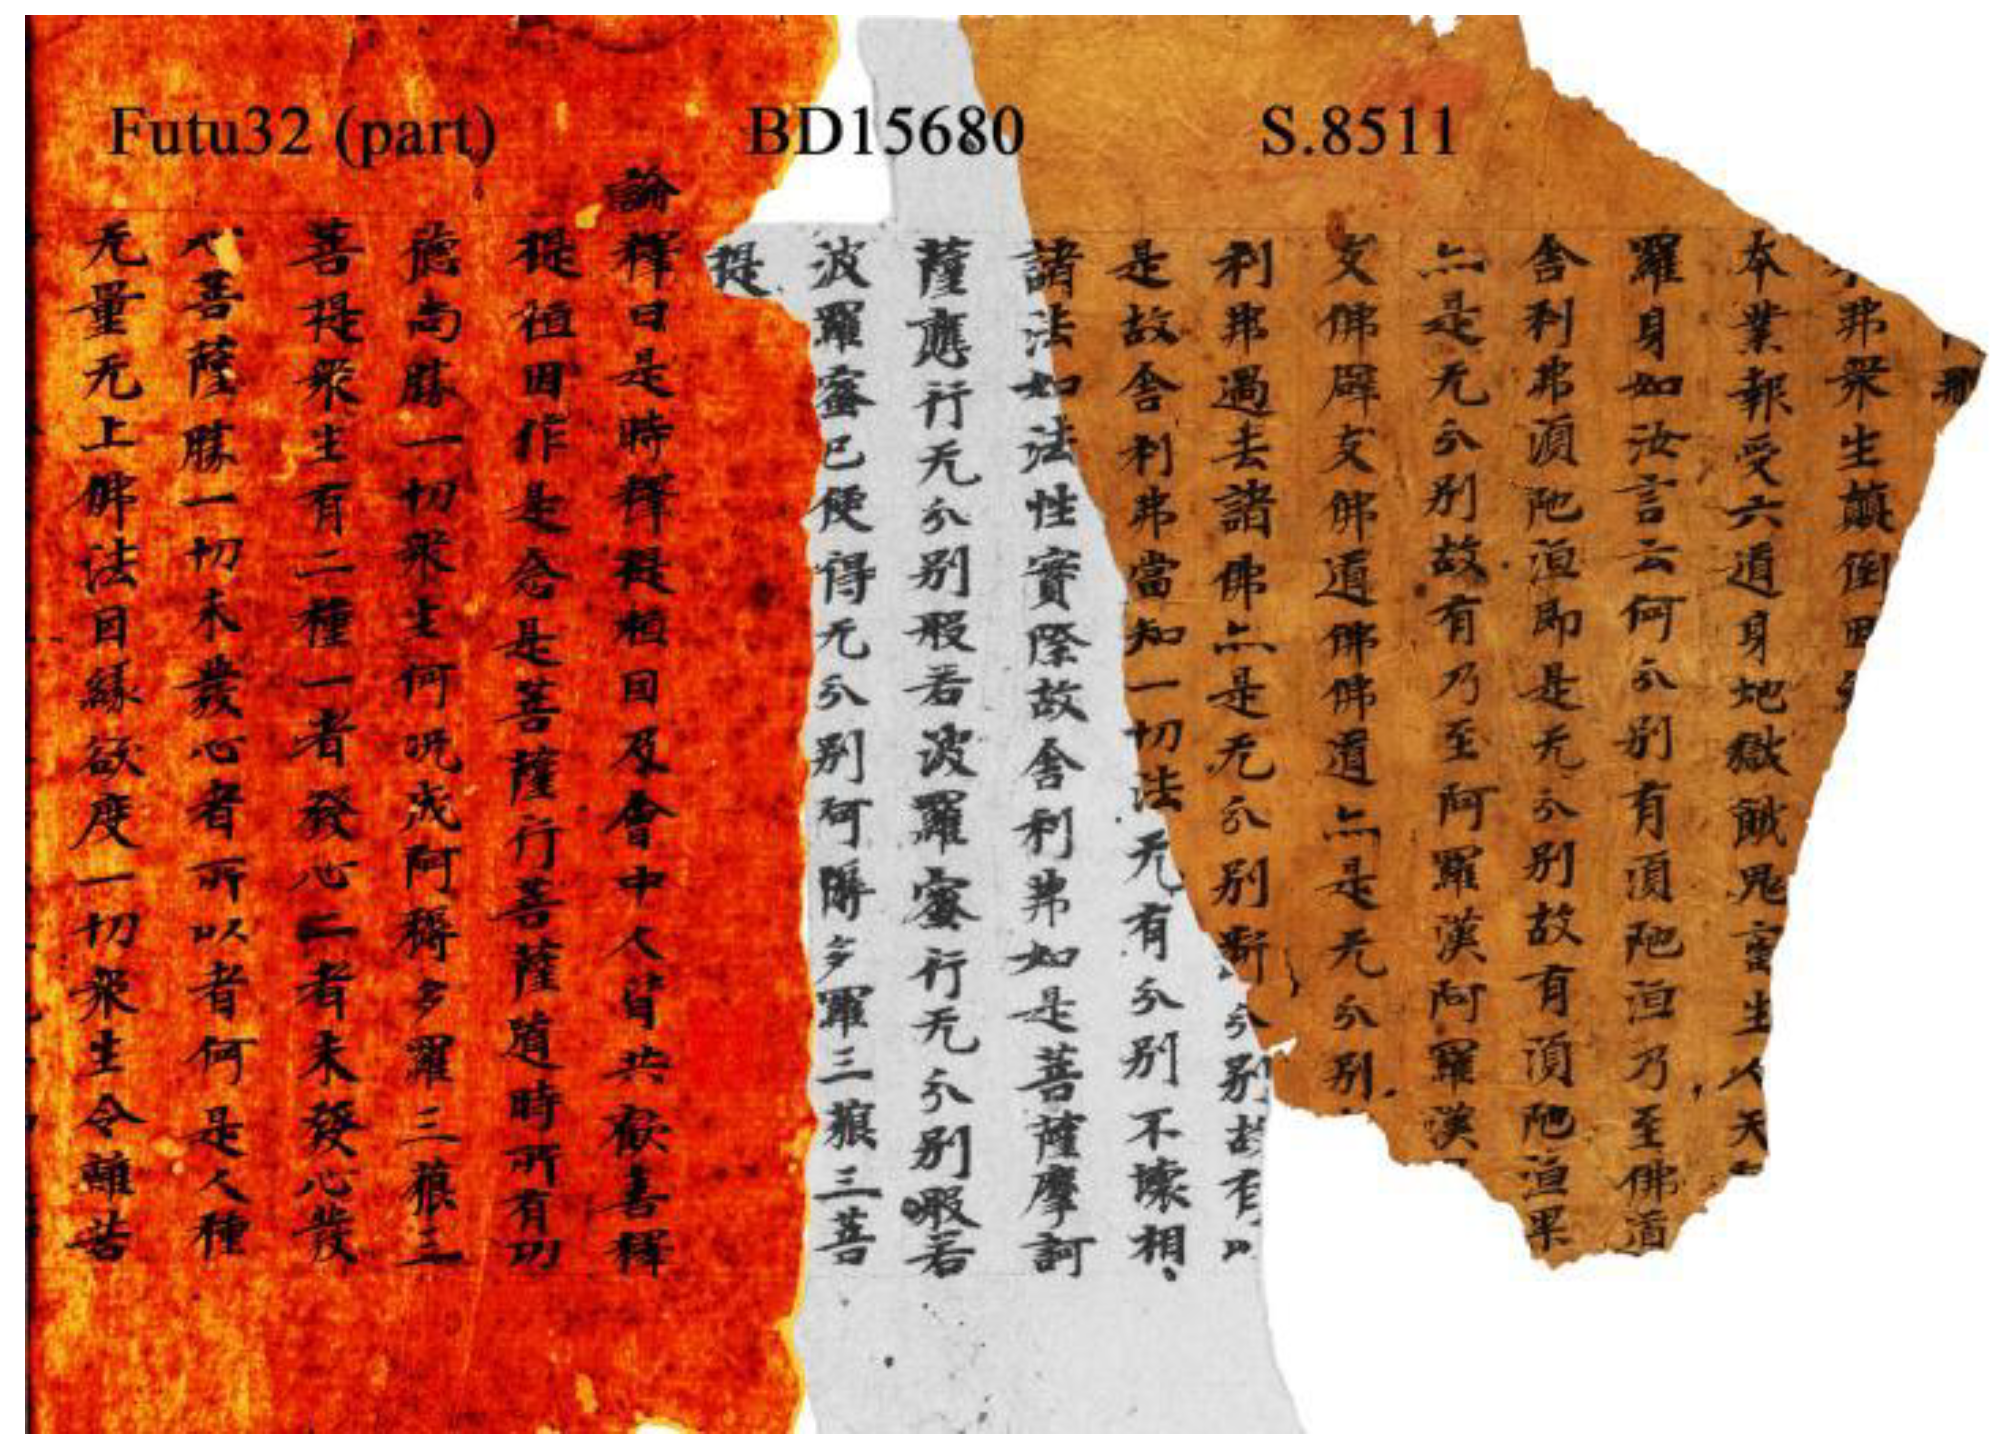 Futu32 (part) BD15680 S.8511
那
弗衆生顛倒因
本業報受六道身地獄餓鬼畜生人天
羅身如汝言云何分別有湏陁洹乃至佛道
舍利弗湏陁洹即是无分別故有湏陁洹果
亦是无分別故有乃至阿羅漢阿羅漢
支佛辟支佛道佛佛道亦是无分別
利弗過去諸佛亦是无分別斷分別故有以
是故舍利弗當知一切法无有分別不壞相
諸法如法性實際故舍利弗如是菩薩摩訶
薩應行无分別般若波羅蜜行无分別般若
波羅蜜已便得无分別阿耨多羅三藐三菩
提
論
釋曰是時釋提桓因及會中人皆共歡喜釋
提桓因作是念是菩薩行菩薩道時所有功
德尚勝一切衆生何況成阿耨多羅三藐三
菩提衆生有二種一者發心二者未發心發
心菩薩勝一切未發心者所以者何是人種
无量无上佛法因緣欲度一切衆生令離苦